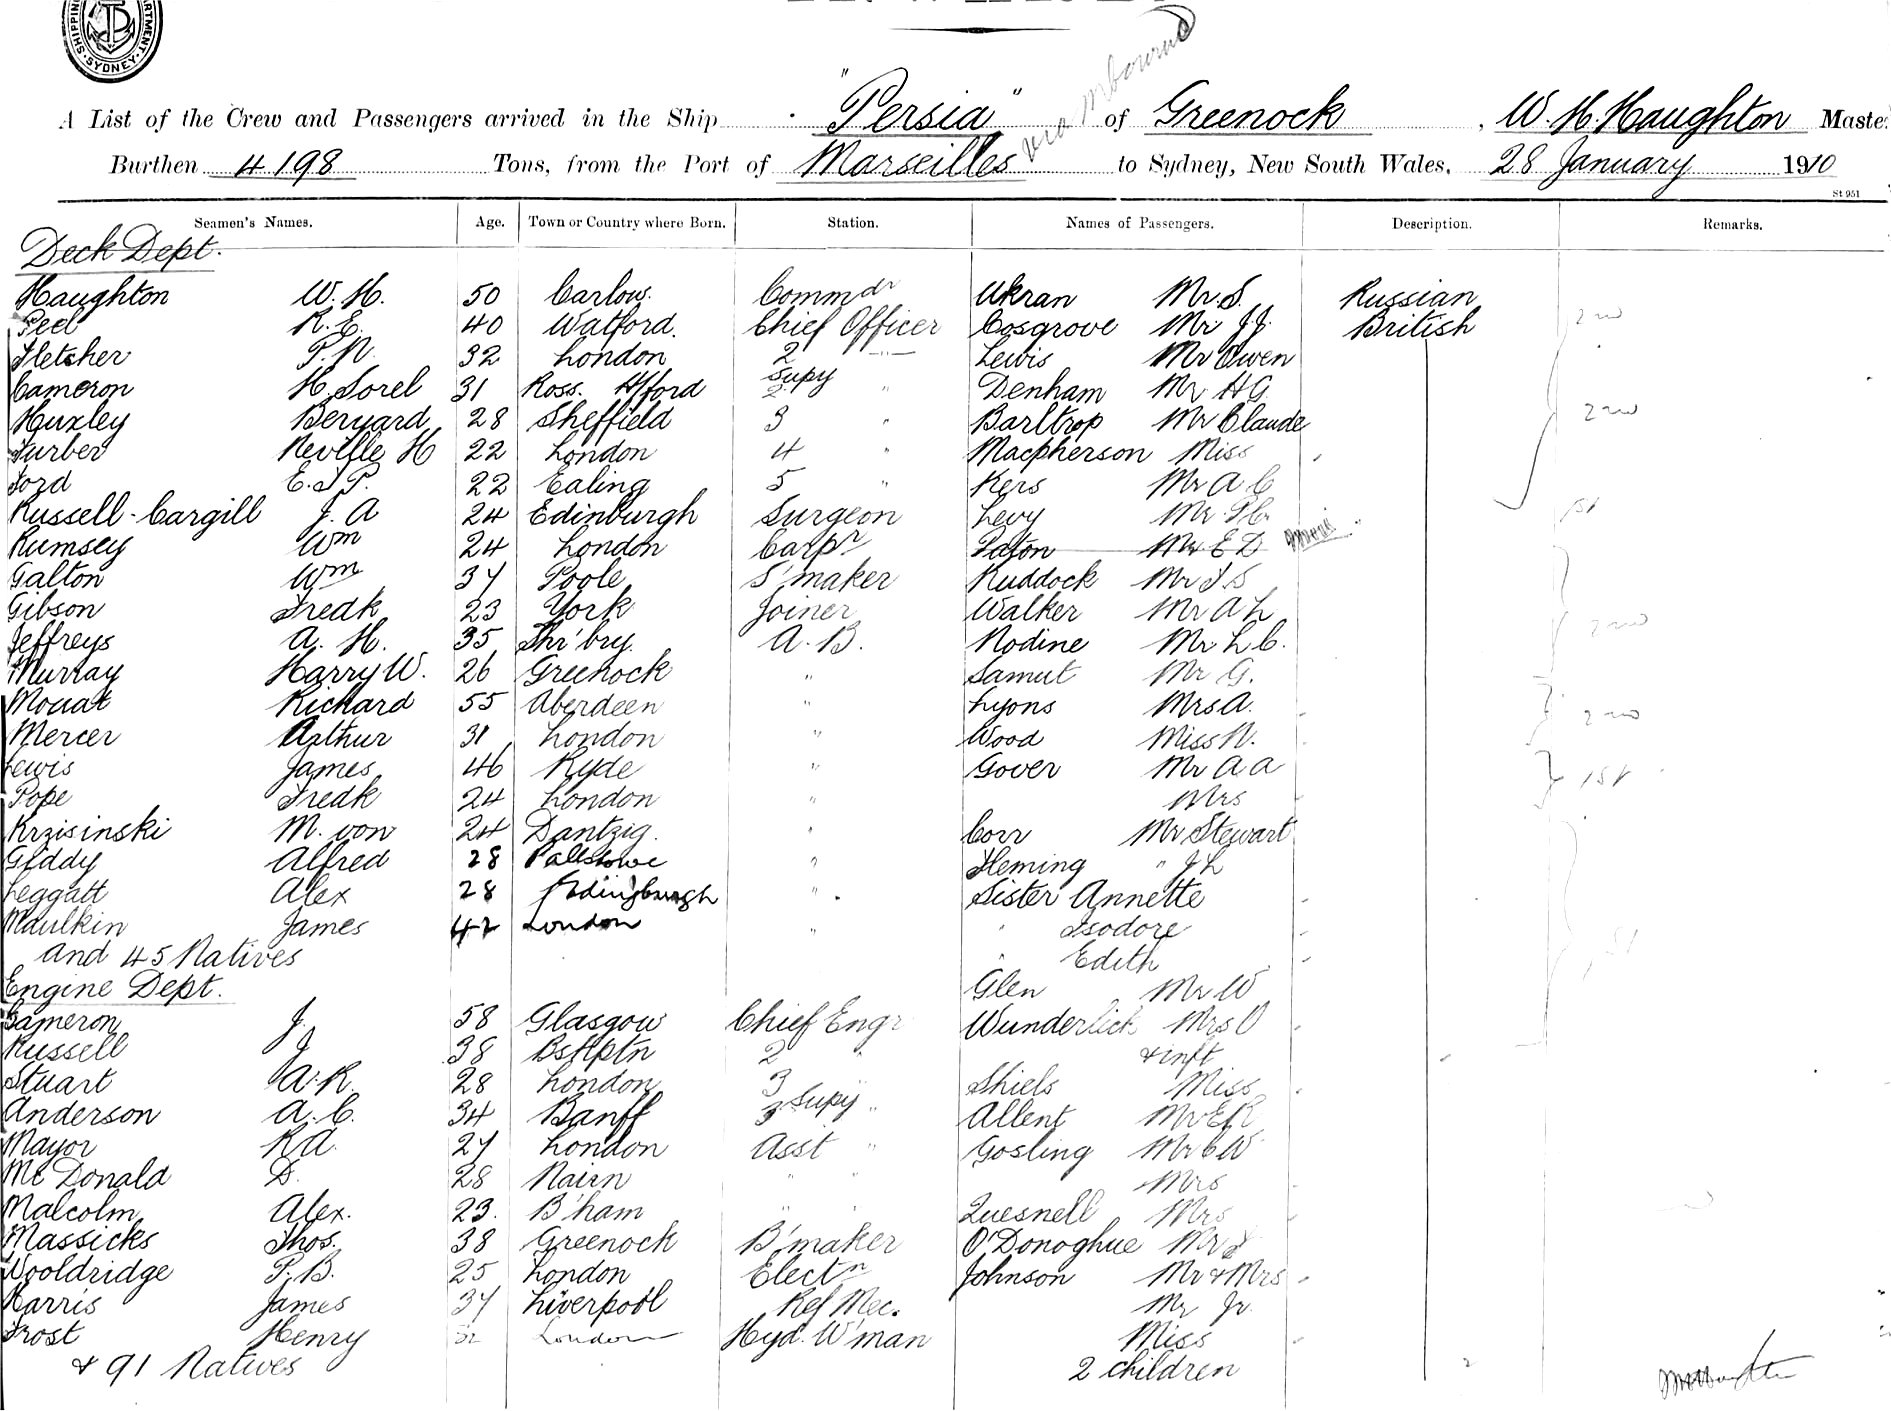 SHIPPING DEPARTMENT SYDNEY
A List of the Crew and Passengers arrived in the Ship "Persia" of Greenock, W. H. Haughton Master
Burthen 4198 Tons, from the Port of Marseilles via to Sydney, New South Wales, 28 January 1910
St 951
Seamen's Names. Age. Town or Country where Born. Station. Names of Passengers. Description. Remarks.
Deck Dept.
Haughton W. H. 50 Carlow. Commdr Ukran Mr. S. Russian
Peel R. E. 40 Watford. Chief Officer Cosgrove Mr J.J. British 2nd
Fletcher P. N. 32 London 2 " Lewis Mr Owen
Cameron H. Sorel 31 Ross. Supy 2 " Denham Mr H G
Huxley Bernard 28 Sheffield 3 " Barltrop Mr Claude 2nd
Furber Neville H 22 London 4 " Macpherson Miss
Ford 22 Ealing 5 " Kers Mr A C
Russell-Cargill J. A 24 Edinburgh Surgeon Levy Mr 1st
Rumsey Wm 24 London Carpr Paton Mr E D
Galton Wm 37 Poole S'maker Ruddock Mr
Gibson Fredk 23 York Joiner Walker Mr A L
Jeffreys A. H. 35 Shr'bry. A. B. Nodine Mr L C. 2nd
Murray Harry W. 26 Greenock " Samut Mr G.
Mouat Richard 55 Aberdeen " Lyons Mrs A. 2nd
Mercer Arthur 31 London " Wood Miss N.
Lewis James 46 Ryde " Gover Mr A A 1st
Pope Fredk 24 London " Mrs
Krzisinski M. von 24 Dantzig. " Corr Mr Stewart
Giddy Alfred 28 " Fleming " J L
Leggatt Alex 28 Edingburgh " Sister Annette
Maulkin James 42 London " " Isodore
and 45 Natives " Edith 1st
Engine Dept. Glen Mr W
Cameron J. 58 Glasgow Chief Engr Wunderlick Mrs O
Russell J 38 2 " & inft
Stuart A. R. 28 London 3 Shiels Miss
Anderson A. C. 34 Banff 3 Supy " Allent Mr E R
Mayor R A. 27 London Asst " Gosling Mr C W
Mc Donald D. 28 Nairn " " Mrs
Malcolm Alex. 23. B'ham " " Quesnell Mrs
Massicks Thos. 38 Greenock B'maker O'Donoghue Mr
Wooldridge P. B. 25 London Electn Johnson Mr & Mrs
Harris James 37 Liverpool Ref Mec. Mr Jr.
Frost Henry 32 London Hyd. W'man Miss
& 91 Natives 2 children